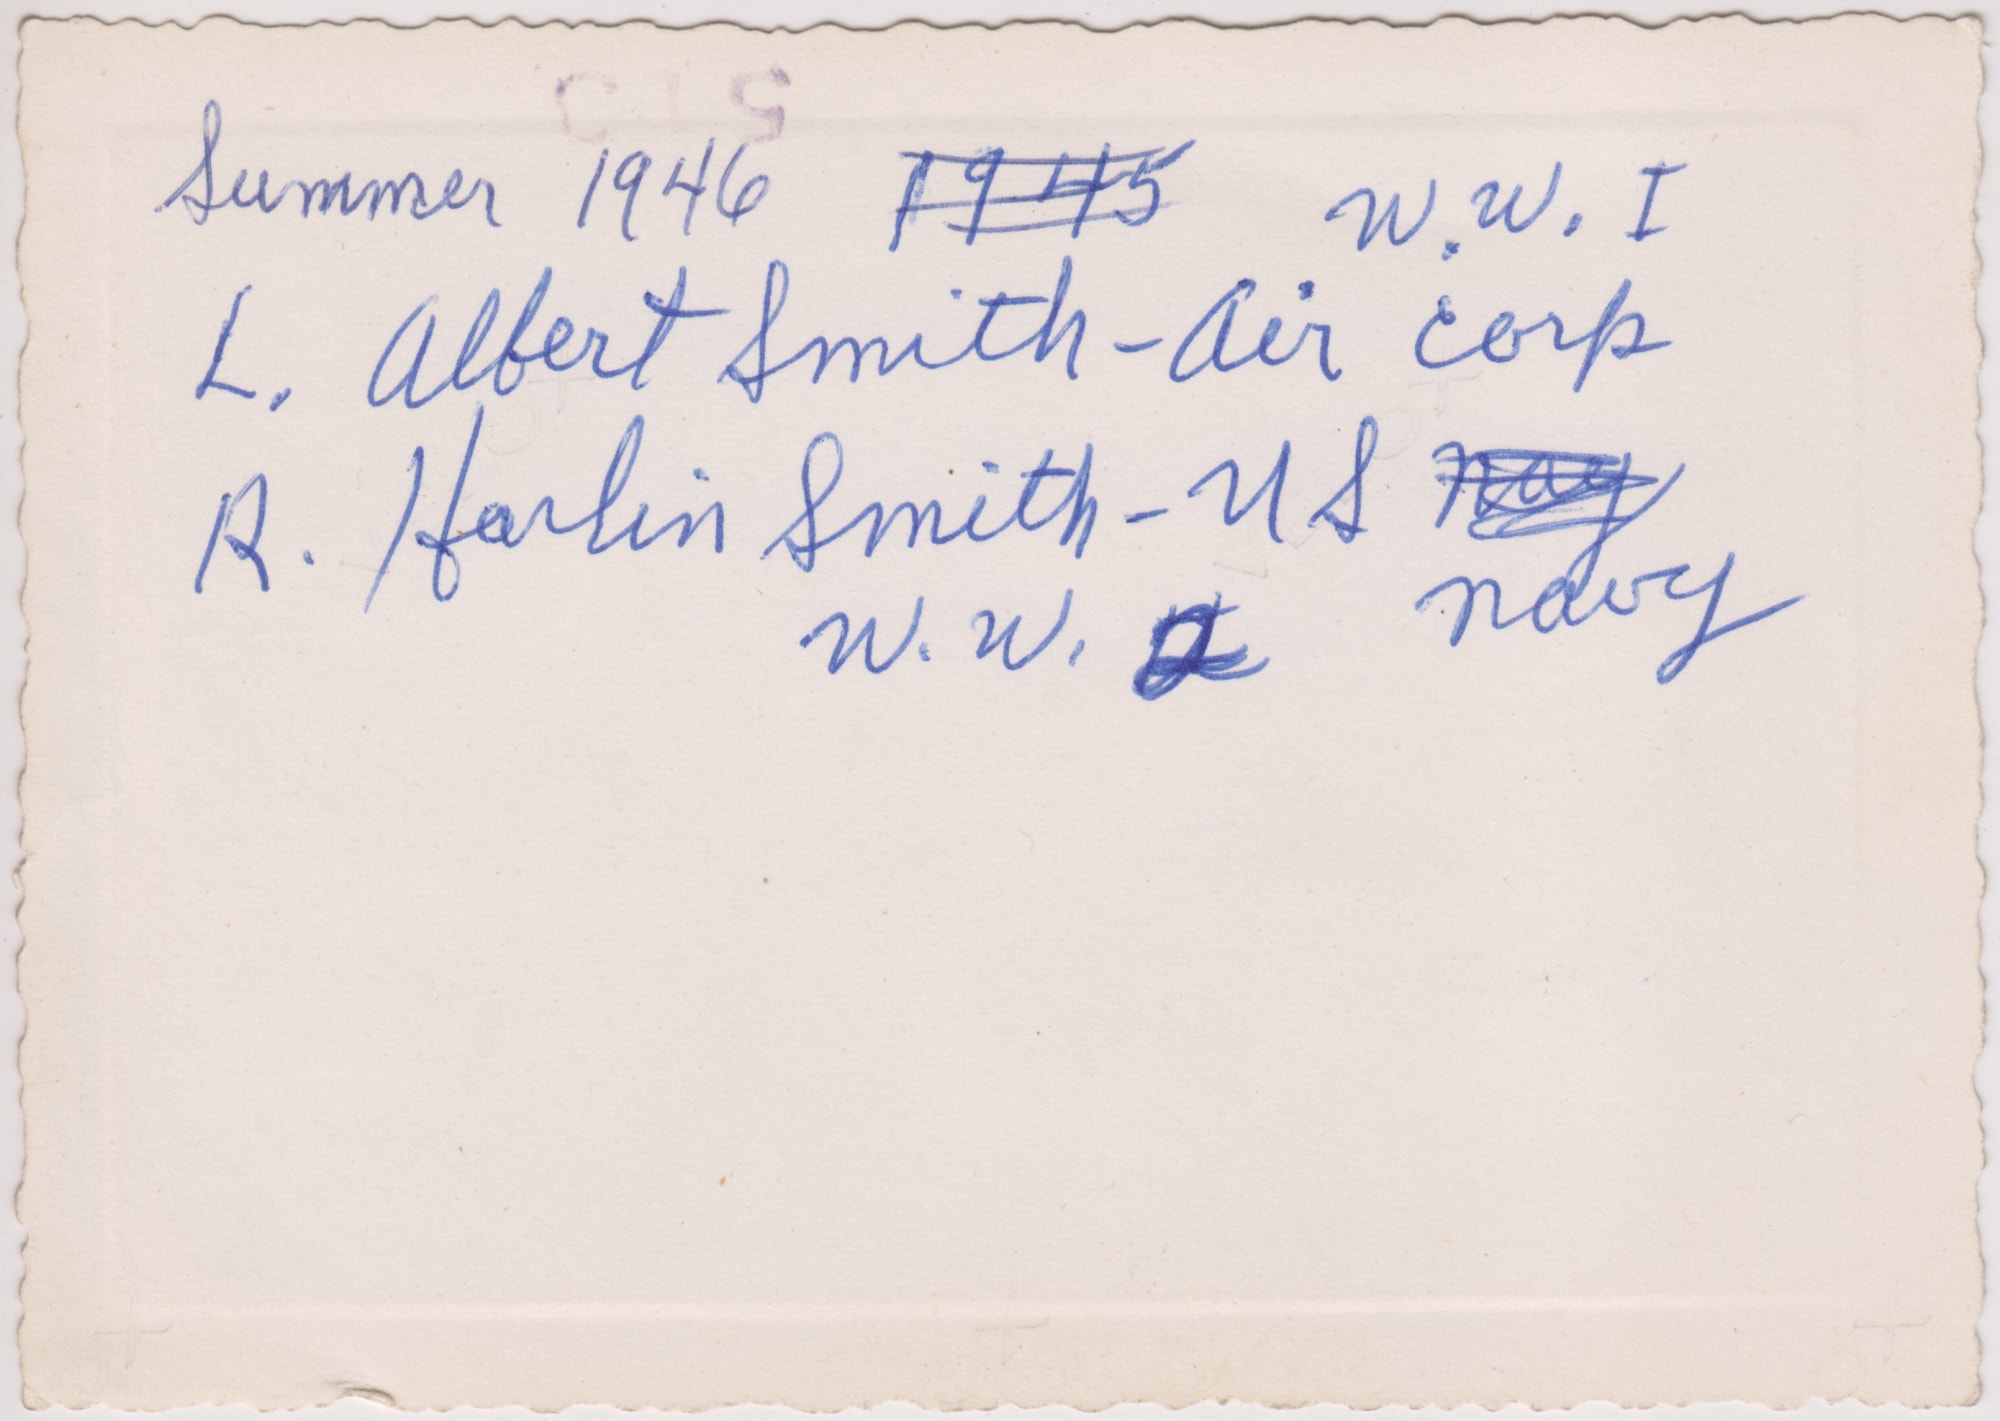 Summer 1946 1945 W.W. I
L. Albert Smith - Air corp
R. Harlin Smith - US Nay
W.W. 2 Navy